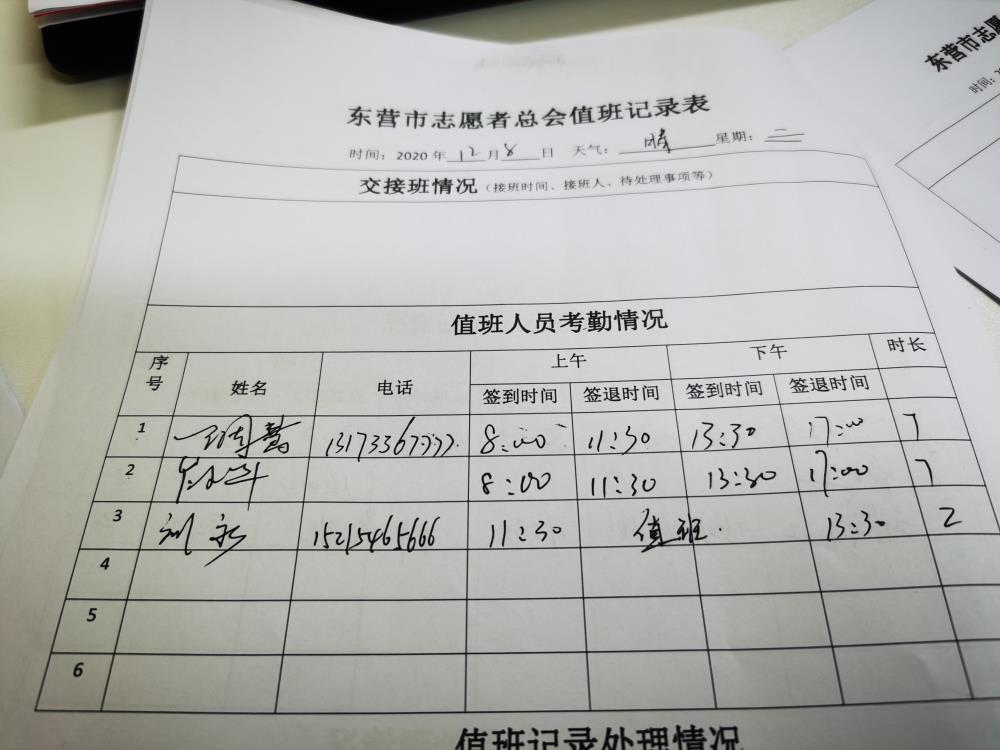 东营市志愿者总会值班记录表
时间：2020 年 12 月 8 日 天气： 晴 星期： 二
交接班情况（接班时间、接班人、待处理事项等）
值班人员考勤情况
序号 姓名 电话 上午 下午 时长
签到时间 签退时间 签到时间 签退时间
1 8:00 11:30 13:30 17:00 7
2 8:00 11:30 13:30 17:00 7
3 刘永 15215465666 11:30 值班. 13:30 2
4
5
6
值班记录处理情况
东营市志愿
时间：